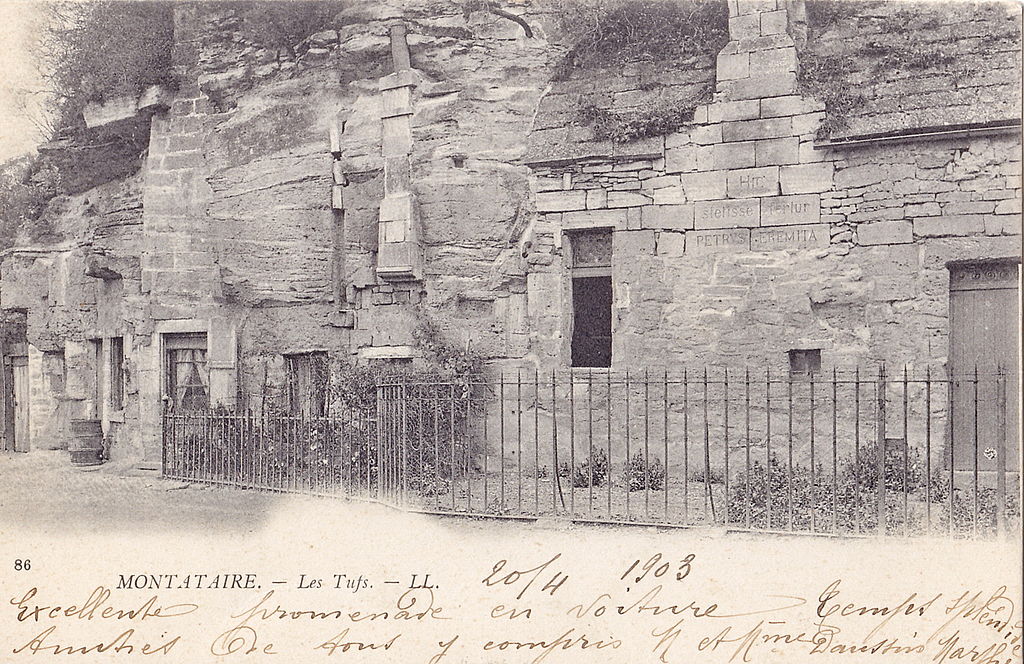 HIC
stetisse fertur
PETRVS EREMITA
86
MONTATAIRE. — Les Tufs. — LL.
20/4 1903
Excellente promenade en voiture Temps splendide
Amitiés de tous y compris M et Mme Daussin Marthe